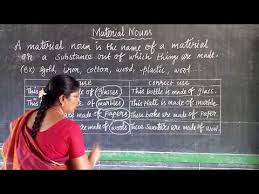 Material Nouns
A material noun is the name of a material
or a substance out of which things are made.
(ex) gold, iron, cotton, wood, plastic, wool
use
correct use
This (glasses)
This bottle is made of glass.
This (marbles)
This Hall is made of marble.
(papers)
These books are made of paper.
are made of (wools)
These Sweaters are made of wool.